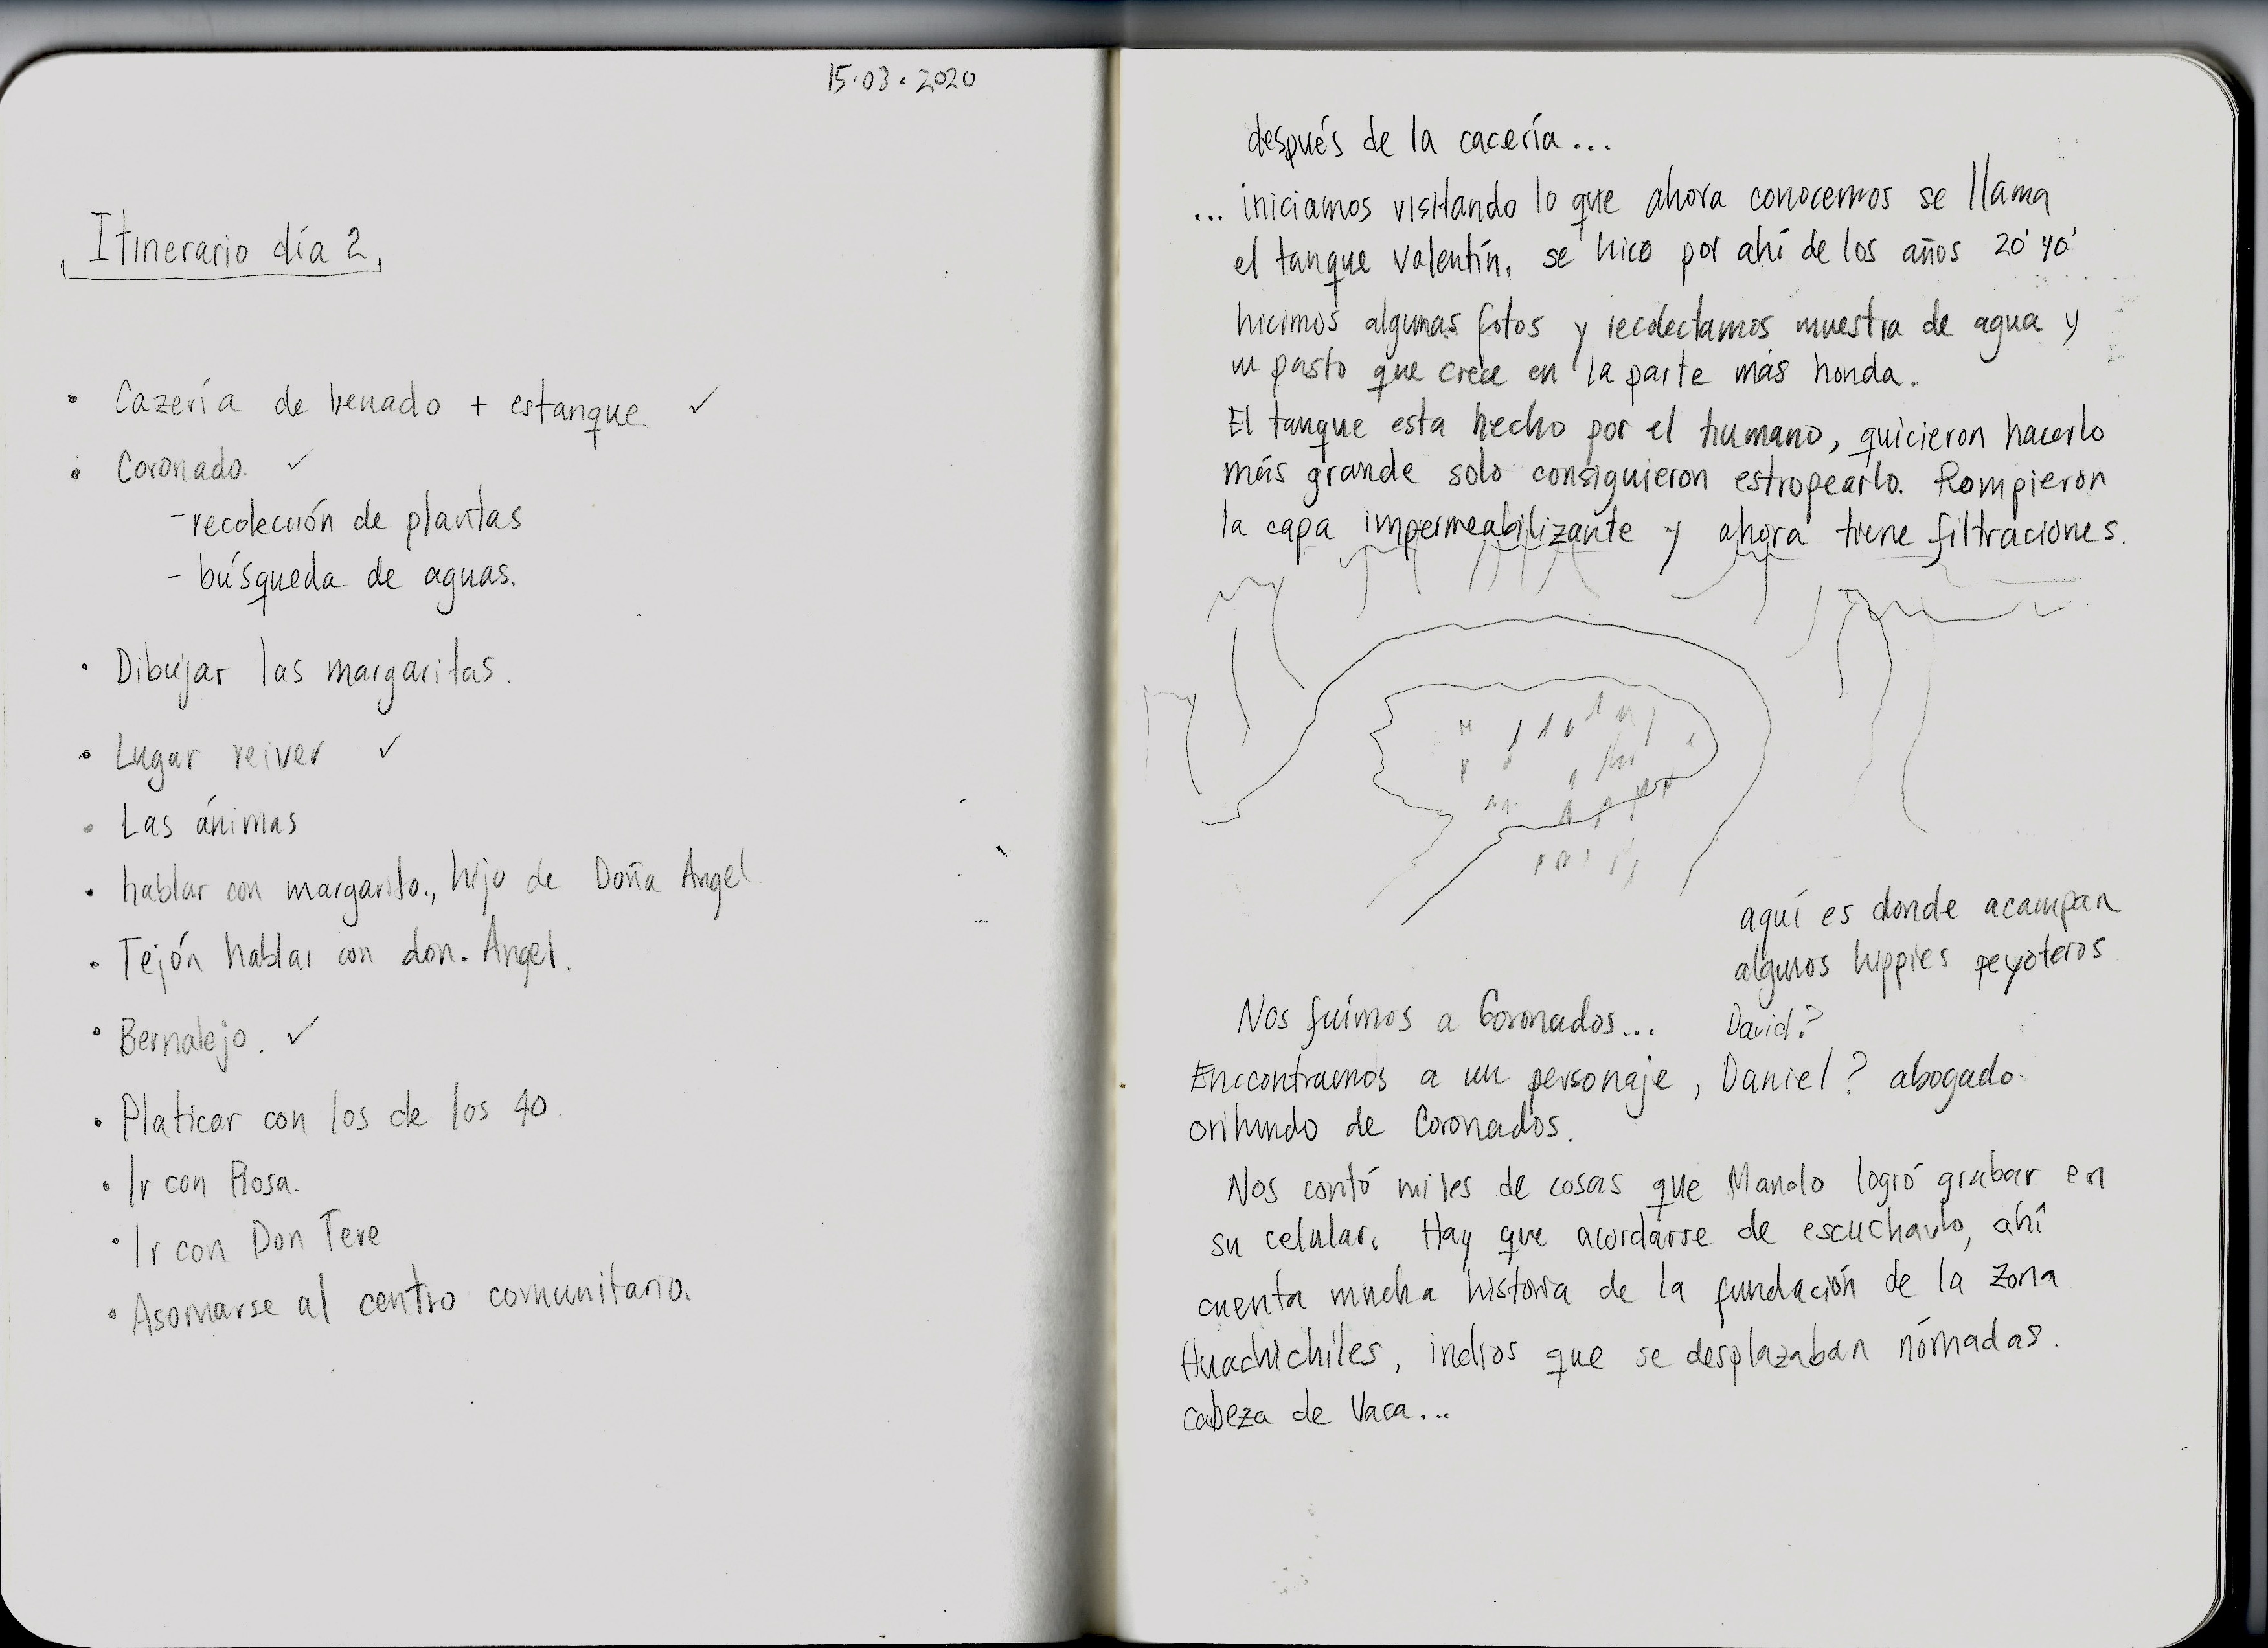 15.03.2020
Itinerario día 2
• Cazería de venado + estanque ✓
• Coronado. ✓
- recolección de plantas
- búsqueda de aguas.
• Dibujar las margaritas.
• Lugar reiver ✓
• Las ánimas
• hablar con margarito., hijo de Doña Angel
• Tejón hablar con don. Ángel.
• Bernalejo. ✓
• Platicar con los de los 40.
• Ir con Rosa.
• Ir con Don Tere
• Asomarse al centro comunitario.
después de la cacería...
... iniciamos visitando lo que ahora conocemos se llama
el tanque Valentín, se hico por ahí de los años 20' 40'
hicimos algunas fotos y recolectamos muestra de agua y
un pasto que crece en la parte más honda.
El tanque esta hecho por el humano, quicieron hacerlo
más grande solo consiguieron estropearlo. Rompieron
la capa impermeabilizante y ahora tiene filtraciones.
aquí es donde acampan
algunos hippies peyoteros
Nos fuímos a Coronados... David?
Enccontramos a un personaje, Daniel? abogado
orihundo de Coronados.
Nos contó miles de cosas que Manolo logró grabar en
su celular. Hay que acordarse de escucharlo, ahí
cuenta mucha historia de la fundación de la zona
Huachichiles, indios que se desplazaban nómadas.
cabeza de Vaca...